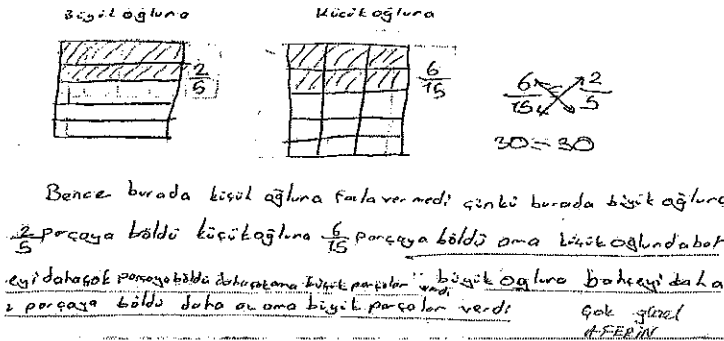 Büyük oğluna
Küçük oğluna
2/5
6/15
6/15 2/5
30=30
Bence burada küçük oğluna fazla vermedi çünkü burada büyük oğluna
2/5 parçaya böldü küçük oğluna 6/15 parçaya böldü ama küçük oğlunda bah
eyi daha çok parçaya böldü daha çok ama küçük parçalar verdi büyük oğluna bahçeyi daha
z parçaya böldü daha az ama büyük parçalar verdi
Çok güzel
AFERİN